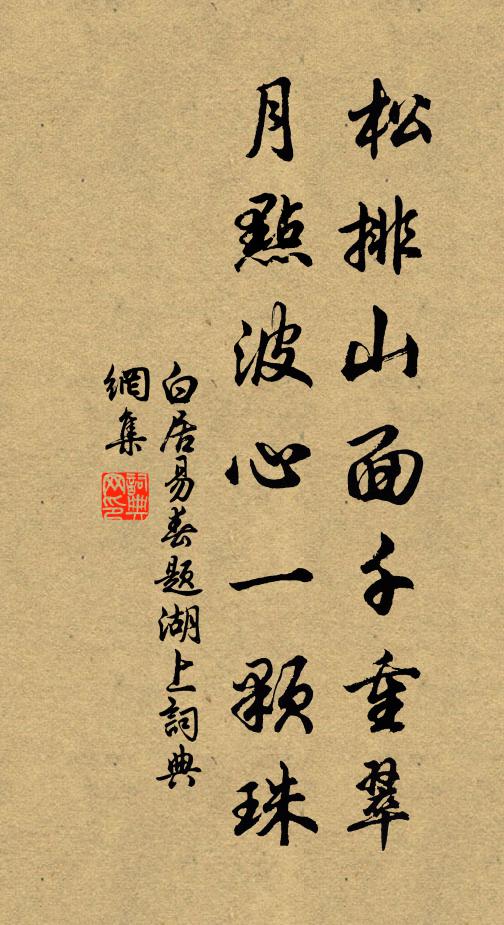 松排山面千重翠
月點波心一顆珠
白居易春題湖上詞典
網集
詞典
网印